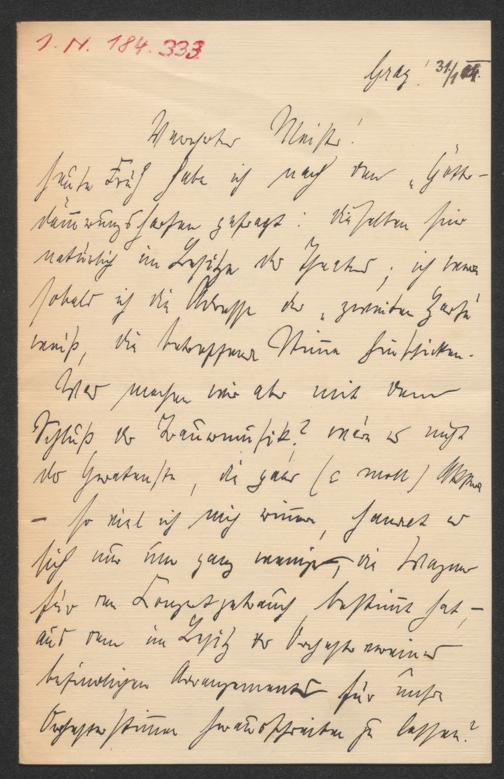 I.N. 184.333
Graz! 31/I 04.
Verehrter Meister!
heute Früh habe ich nach den „Götter-
dämmerungsharfen gefragt: dieselben sind
natürlich im Besitze des Theaters; ich werde
sobald ich die Adresse der „zweiten Harfe"
weiß, die betreffende Stimme hinschicken.
Was machen wir aber mit dem
Schluß der Trauermusik? wäre es nicht
das Gerathenste, die paar (c moll)
– so viel ich mich erinnere, handelt es
sich nur um ganz wenige, die Wagner
für den Konzertgebrauch bestimmt hat, –
aus dem im Besitz des Orchestervereines
befindlichen Arrangement für unsere
Orchesterstimmen herausschreiben zu lassen?